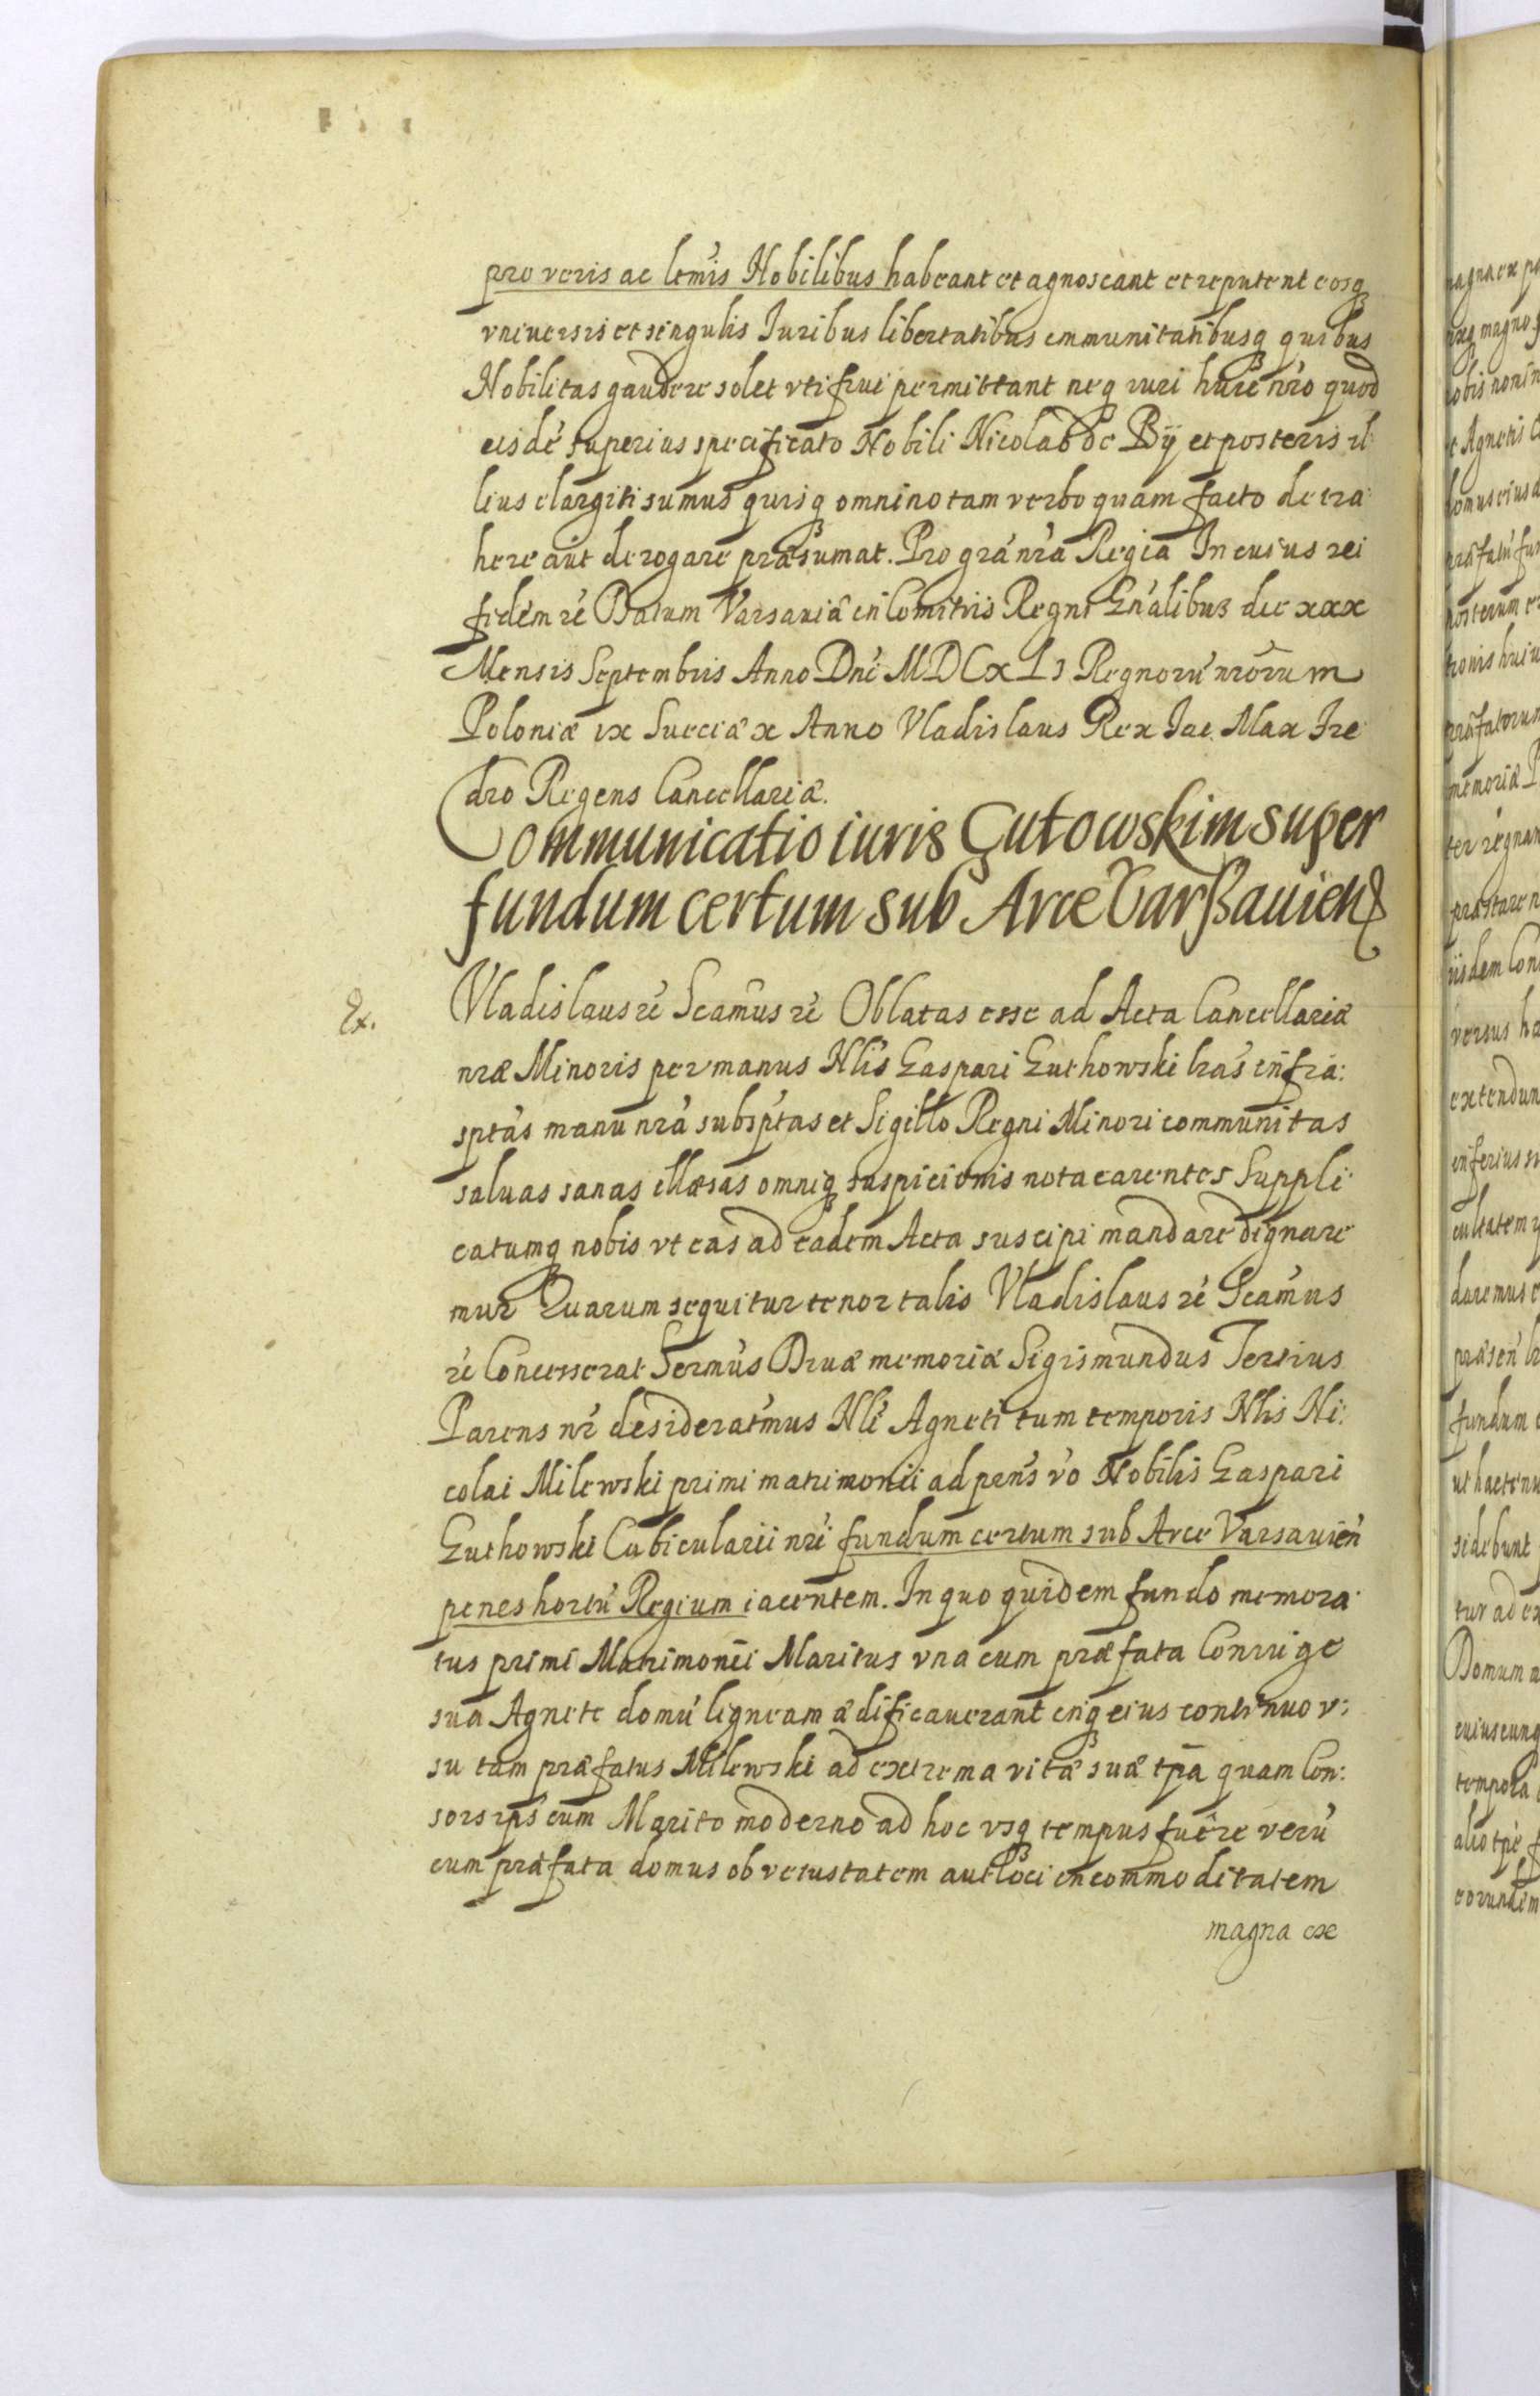 pro veris ac lemis Nobilibus habeant et agnoscant et reputent eosq
vniuersis et singulis Iuribus libertatibus immunitatibusq quibus
Nobilitas gaudere solet vti frui permittant neq iuri huic nro quod
eisde superius specificato Nobili Nicolao de Bÿ et posteris il
lius elargiti sumus quisq omnino tam verbo quam facto detra
here aut derogare præsumat. Pro gra nra Regia In cuius rei
fidem rē Datum Varsauiæ in Comitiis Regni Gnalibus die xxx
Mensis Septembris Anno Dni MDCxLI Regnorū nrorum
Poloniæ ix Sueciæ x Anno Vladislaus Rex Iac. Max Fre
dro Regens Cancellariæ.
Communicatio iuris Gutowskim super
fundum certum sub Arce Varßauien
Ex.
Vladislaus rē Scamus rē Oblatas esse ad Acta Cancellariæ
nræ Minoris per manus Nlis Gaspari Guthowski lras infra:
sptas manu nra subsptas et Sigillo Regni Minori communitas
saluas sanas illæsas omniq suspicionis nota carentes Suppli
catumq nobis vt eas ad eadem Acta suscipi mandare dignare
mur Quarum sequitur tenor talis Vladislaus rē Scamus
rē Concesserat Sermus Diuæ memoriæ Sigismundus Tertius
Parens nr desideratmus Nli Agneti tum temporis Nlis Ni:
colai Milewski primi matrimonii ad pens vo Nobilis Gaspari
Guthowski Cubicularii nri fundum certum sub Arce Varsauien
penes hortū Regium iacentem. In quo quidem fundo memora
tus primi Matrimonii Maritus vna cum præfata Coniuge
sua Agnete domū ligneam ædificauerant inq eius continuo v:
su tam præfatus Milewski ad extrema vitæ suæ tpa quam Con:
sors ips cum Marito moderno ad hoc vsq tempus fuere verū
cum præfata domus ob vetustatem aut loci incommoditatem
magna ex